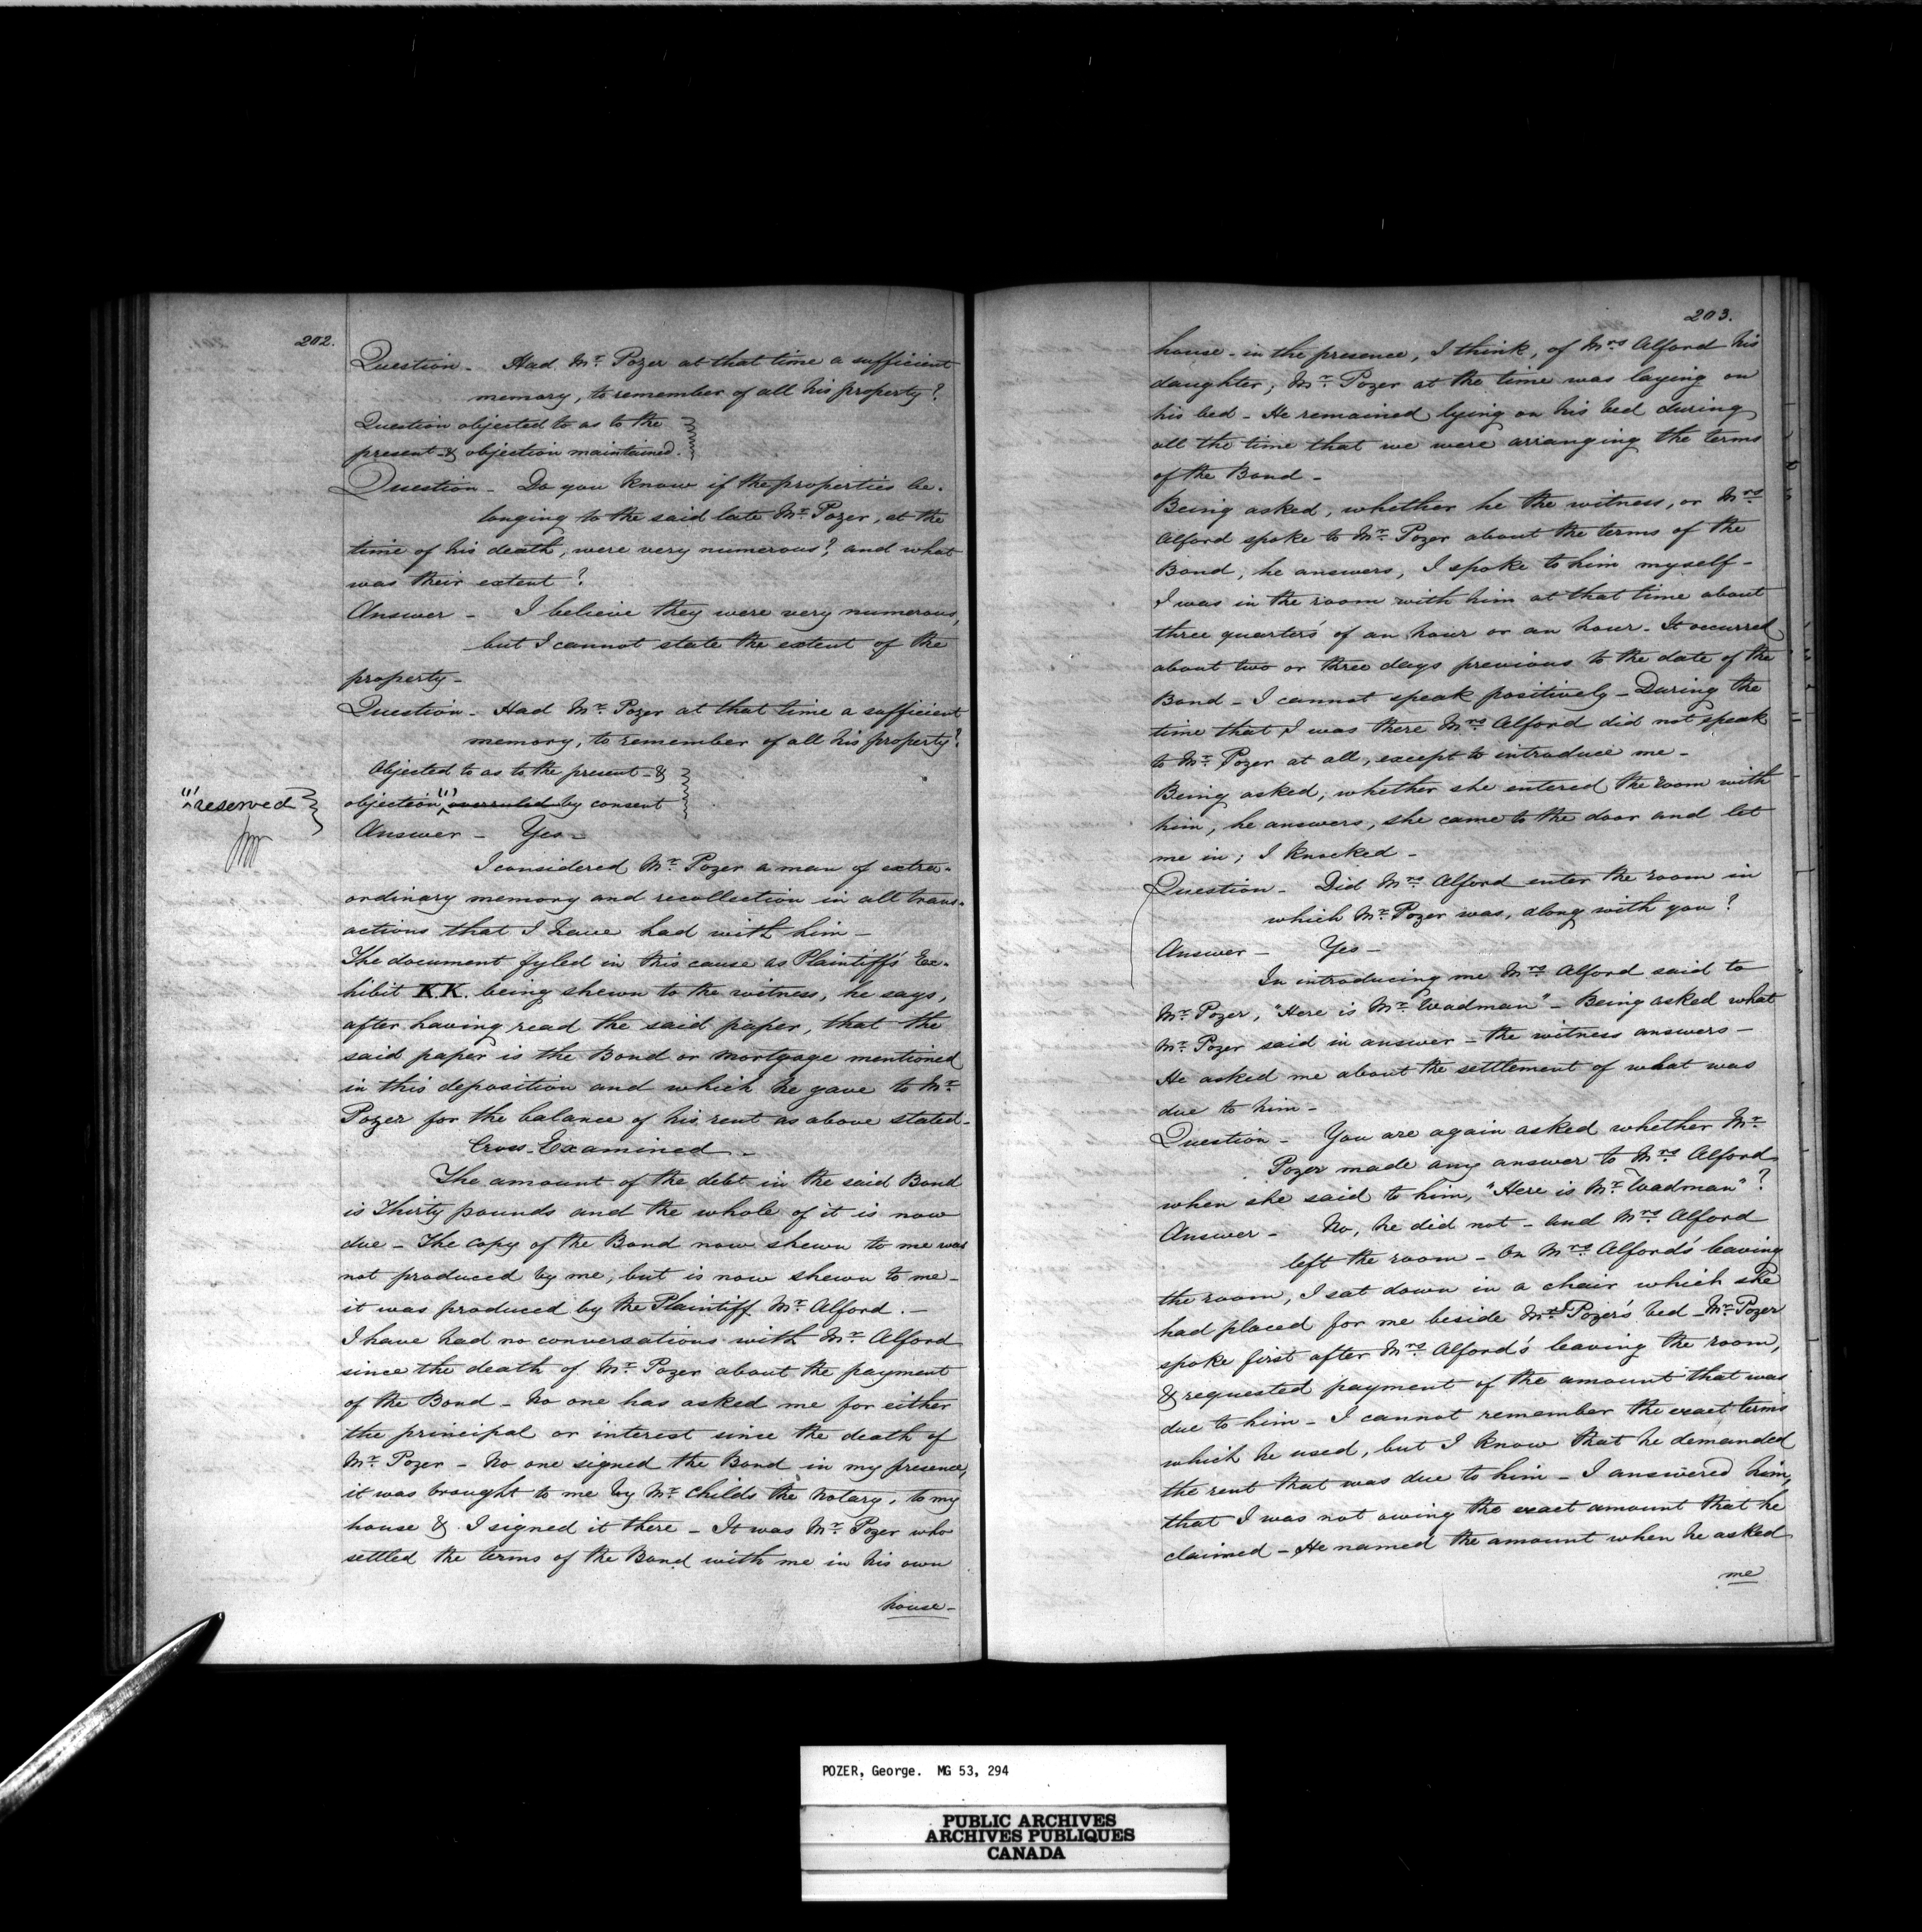 202.
Question - Had Mr. Pozer at that time a sufficient
memory, to remember of all his property?
Question objected to as to the
present - & objection maintained.
Question - Do you know if the properties be-
longing to the said late Mr. Pozer, at the
time of his death, were very numerous? and what
was their extent?
Answer - I believe they were very numerous,
but I cannot state the extent of the
property -
Question - Had Mr. Pozer at that time a sufficient
memory, to remember of all his property?
Objected to as to the present - &
"reserved" objection overruled by consent
Answer - Yes -
I considered Mr. Pozer a man of extra-
ordinary memory and recollection in all trans-
actions that I have had with him -
The document fyled in this cause as Plaintiff's Ex-
hibit K.K. being shewn to the witness, he says,
after having read the said paper, that the
said paper is the Bond or mortgage mentioned
in this deposition and which he gave to Mr.
Pozer for the balance of his rent as above stated -
Cross-Examined -
The amount of the debt in the said Bond
is Thirty pounds and the whole of it is now
due - The copy of the Bond now shewn to me was
not produced by me, but is now shewn to me -
it was produced by the Plaintiff Mr. Alford. -
I have had no conversations with Mr. Alford
since the death of Mr. Pozer about the payment
of the Bond - No one has asked me for either
the principal or interest since the death of
Mr. Pozer - No one signed the Bond in my presence,
it was brought to me by Mr. Childs the Notary, to my
house & I signed it there - It was Mr. Pozer who
settled the terms of the Bond with me in his own
house -
203.
house - in the presence, I think, of Mrs. Alford his
daughter; Mr. Pozer at the time was laying on
his bed - He remained lying on his bed during
all the time that we were arranging the terms
of the Bond -
Being asked, whether he the witness, or Mrs.
Alford spoke to Mr. Pozer about the terms of the
Bond, he answers, I spoke to him myself -
I was in the room with him at that time about
three quarters' of an hour or an hour - It occurred
about two or three days previous to the date of the
Bond - I cannot speak positively - During the
time that I was there Mrs. Alford did not speak
to Mr. Pozer at all, except to introduce me -
Being asked, whether she entered the room with
him, he answers, she came to the door and let
me in; I knocked -
Question - Did Mrs. Alford enter the room in
which Mr. Pozer was, along with you?
Answer - Yes -
In introducing me Mrs. Alford said to
Mr. Pozer, "Here is Mr. Wadman" - Being asked what
Mr. Pozer said in answer - the witness answers -
He asked me about the settlement of what was
due to him -
Question - You are again asked whether Mr.
Pozer made any answer to Mrs. Alford
when she said to him, "Here is Mr. Wadman"?
Answer - No, he did not - and Mrs. Alford
left the room - On Mrs. Alford's leaving
the room, I sat down in a chair which she
had placed for me beside Mr. Pozer's bed - Mr. Pozer
spoke first after Mrs. Alford's leaving the room,
& requested payment of the amount that was
due to him - I cannot remember the exact terms
which he used, but I know that he demanded
the rent that was due to him - I answered him,
that I was not owing the exact amount that he
claimed - He named the amount when he asked
me
POZER, George. MG 53, 294
PUBLIC ARCHIVES
ARCHIVES PUBLIQUES
CANADA